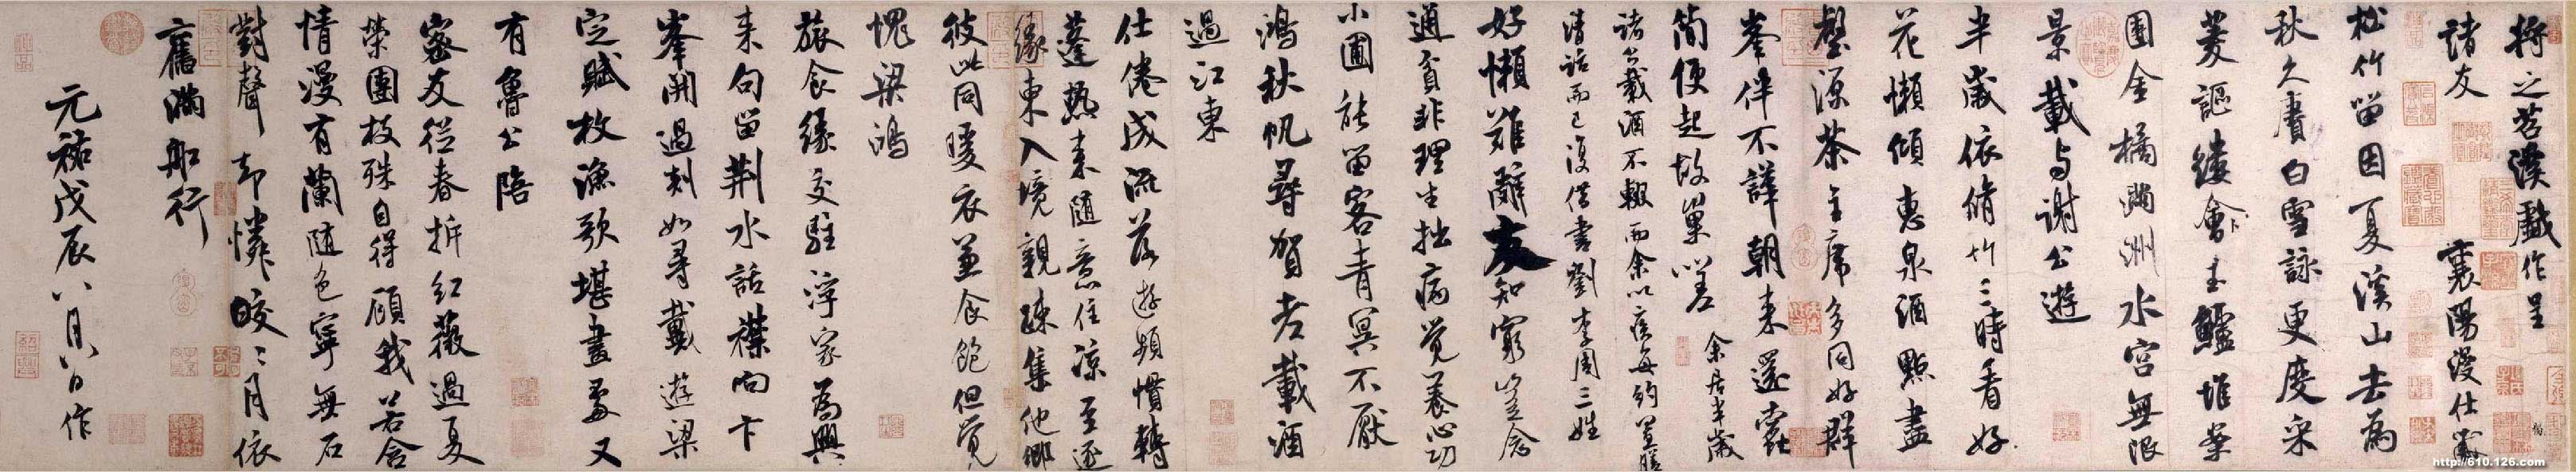 將之苕溪戲作呈
諸友 襄陽漫仕黻
松竹留因夏溪山去為
秋久賡白雪詠更度采
菱謳縷會玉鱸堆案
團金橘滿洲水宮無限
景載與謝公遊
半歲依脩竹三時看好
花懶傾惠泉酒點盡
壑源茶主席多同好群
峯伴不譁朝來還蠹
簡便起故巢嗟 余居半歲
諸公載酒不輟而余以疾每約置膳
清話而已復借書劉李周三姓
好懶難辭友知窮豈念
通貧非理生拙病覺養心功
小圃能留客青冥不厭
鴻秋帆尋賀老載酒
過江東
仕倦成流落遊頻慣轉
蓬熱來隨意住涼至逐
緣東入境親疎集他鄉
彼此同暖衣兼食飽但覺
愧梁鴻
旅食緣交駐浮家為興
來句留荊水話襟向卞
峯開過剡如尋戴遊梁
定賦枚漁歌堪畫處又
有魯公陪
密友從春拆紅薇過夏
榮團枝殊自得顧我若含
情漫有蘭隨色寧無石
對聲却憐皎〻月依
舊滿船行
元祐戊辰八月八日作
http://610.126.com